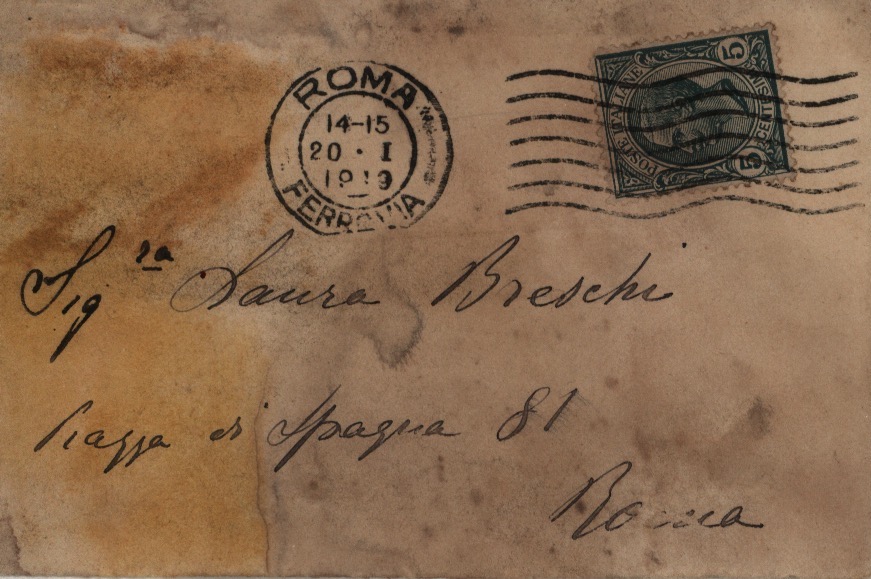 ROMA
14-15
20 · I
1919
FERROVIA
POSTE ITALIANE
5 CENTESIMI 5
Sig.ra Laura Breschi
Piazza di Spagna 81
Roma